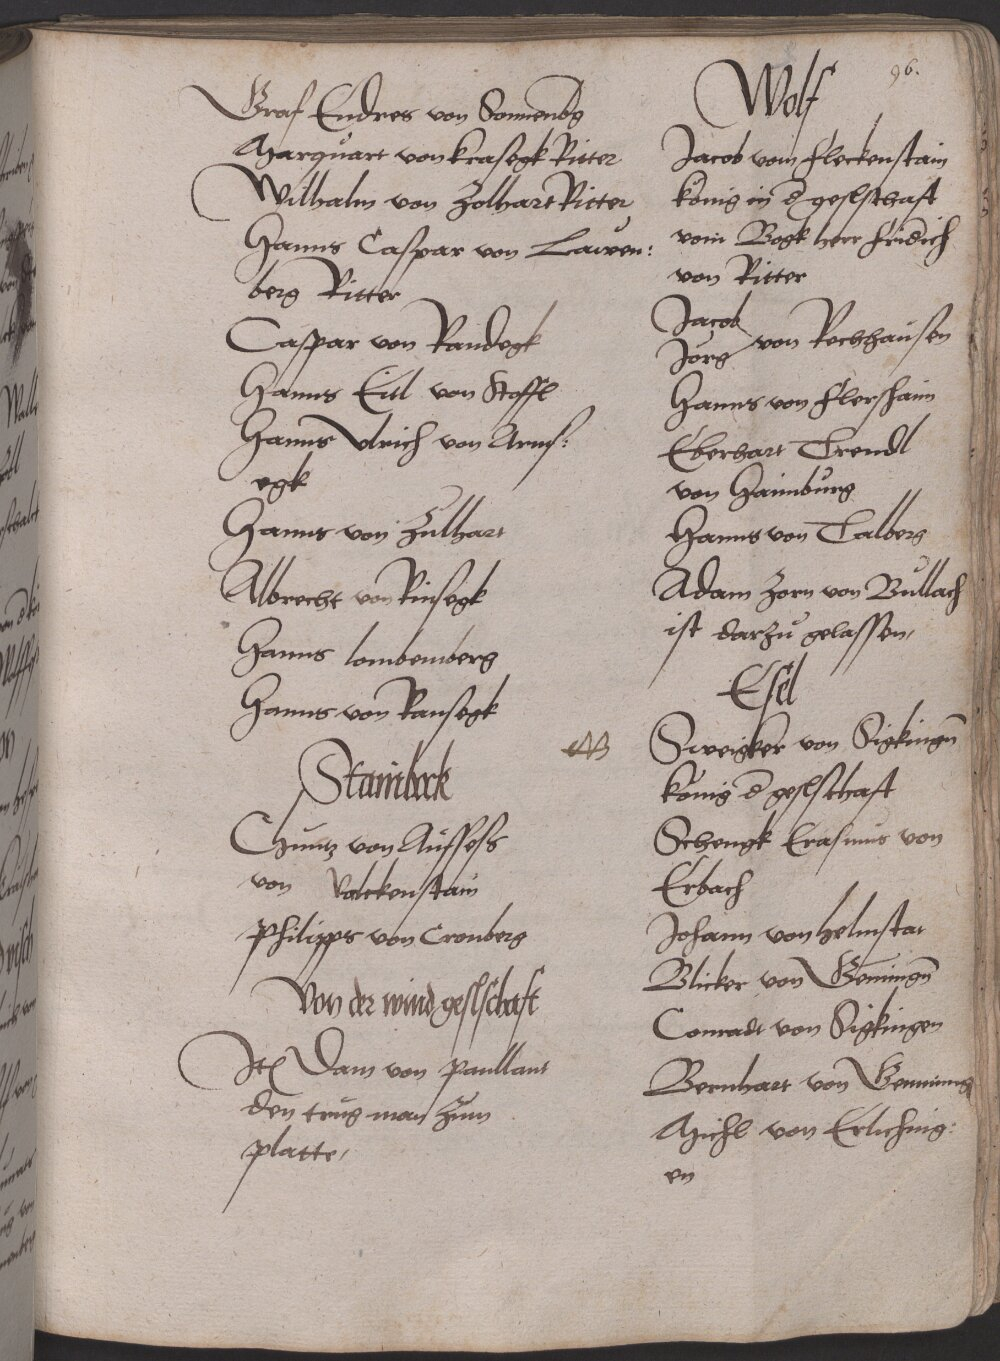 96.
Graf Endres von Sonnenbg
Marquart von krasegk Ritter
Wilhalm von Zolhart Ritter
Hanns Caspar von Lauren:
berg Ritter
Caspar von Randegk
Hanns Eitl von Stoffl
Hanns Ulrich von Arms:
egk
Hanns von Zulhart
Albrecht von Rinsegk
Hanns lombemberg
Hanns von Ransegk
Stainbock
Chuntz von Aufses
von Valckenstain
Philipps von Cronberg
Von der wind geslschaft
Itē Dam von paullant
den trug man zum
platte,
Wolf
Jacob vom fleckenstain
König in d geslschaft
vom Bogk herr fridich
von Ritter
Jacob
Jörg von Rechhausen
Hanns von flershaim
Eberhart Trendl
von Haimburg
Hanns von Talberg
Adam Zorn von Bullach
ist darzu gelassen,
Esel
Sweigker von Sigkingn̄
König d geslschaft
Schengk Erasmus von
Erbach
Johann von helmstat
Blicker von Gemingn̄
Conradt von Sigkingen
Bernhart von Gemming
Michl von Erliching:
en